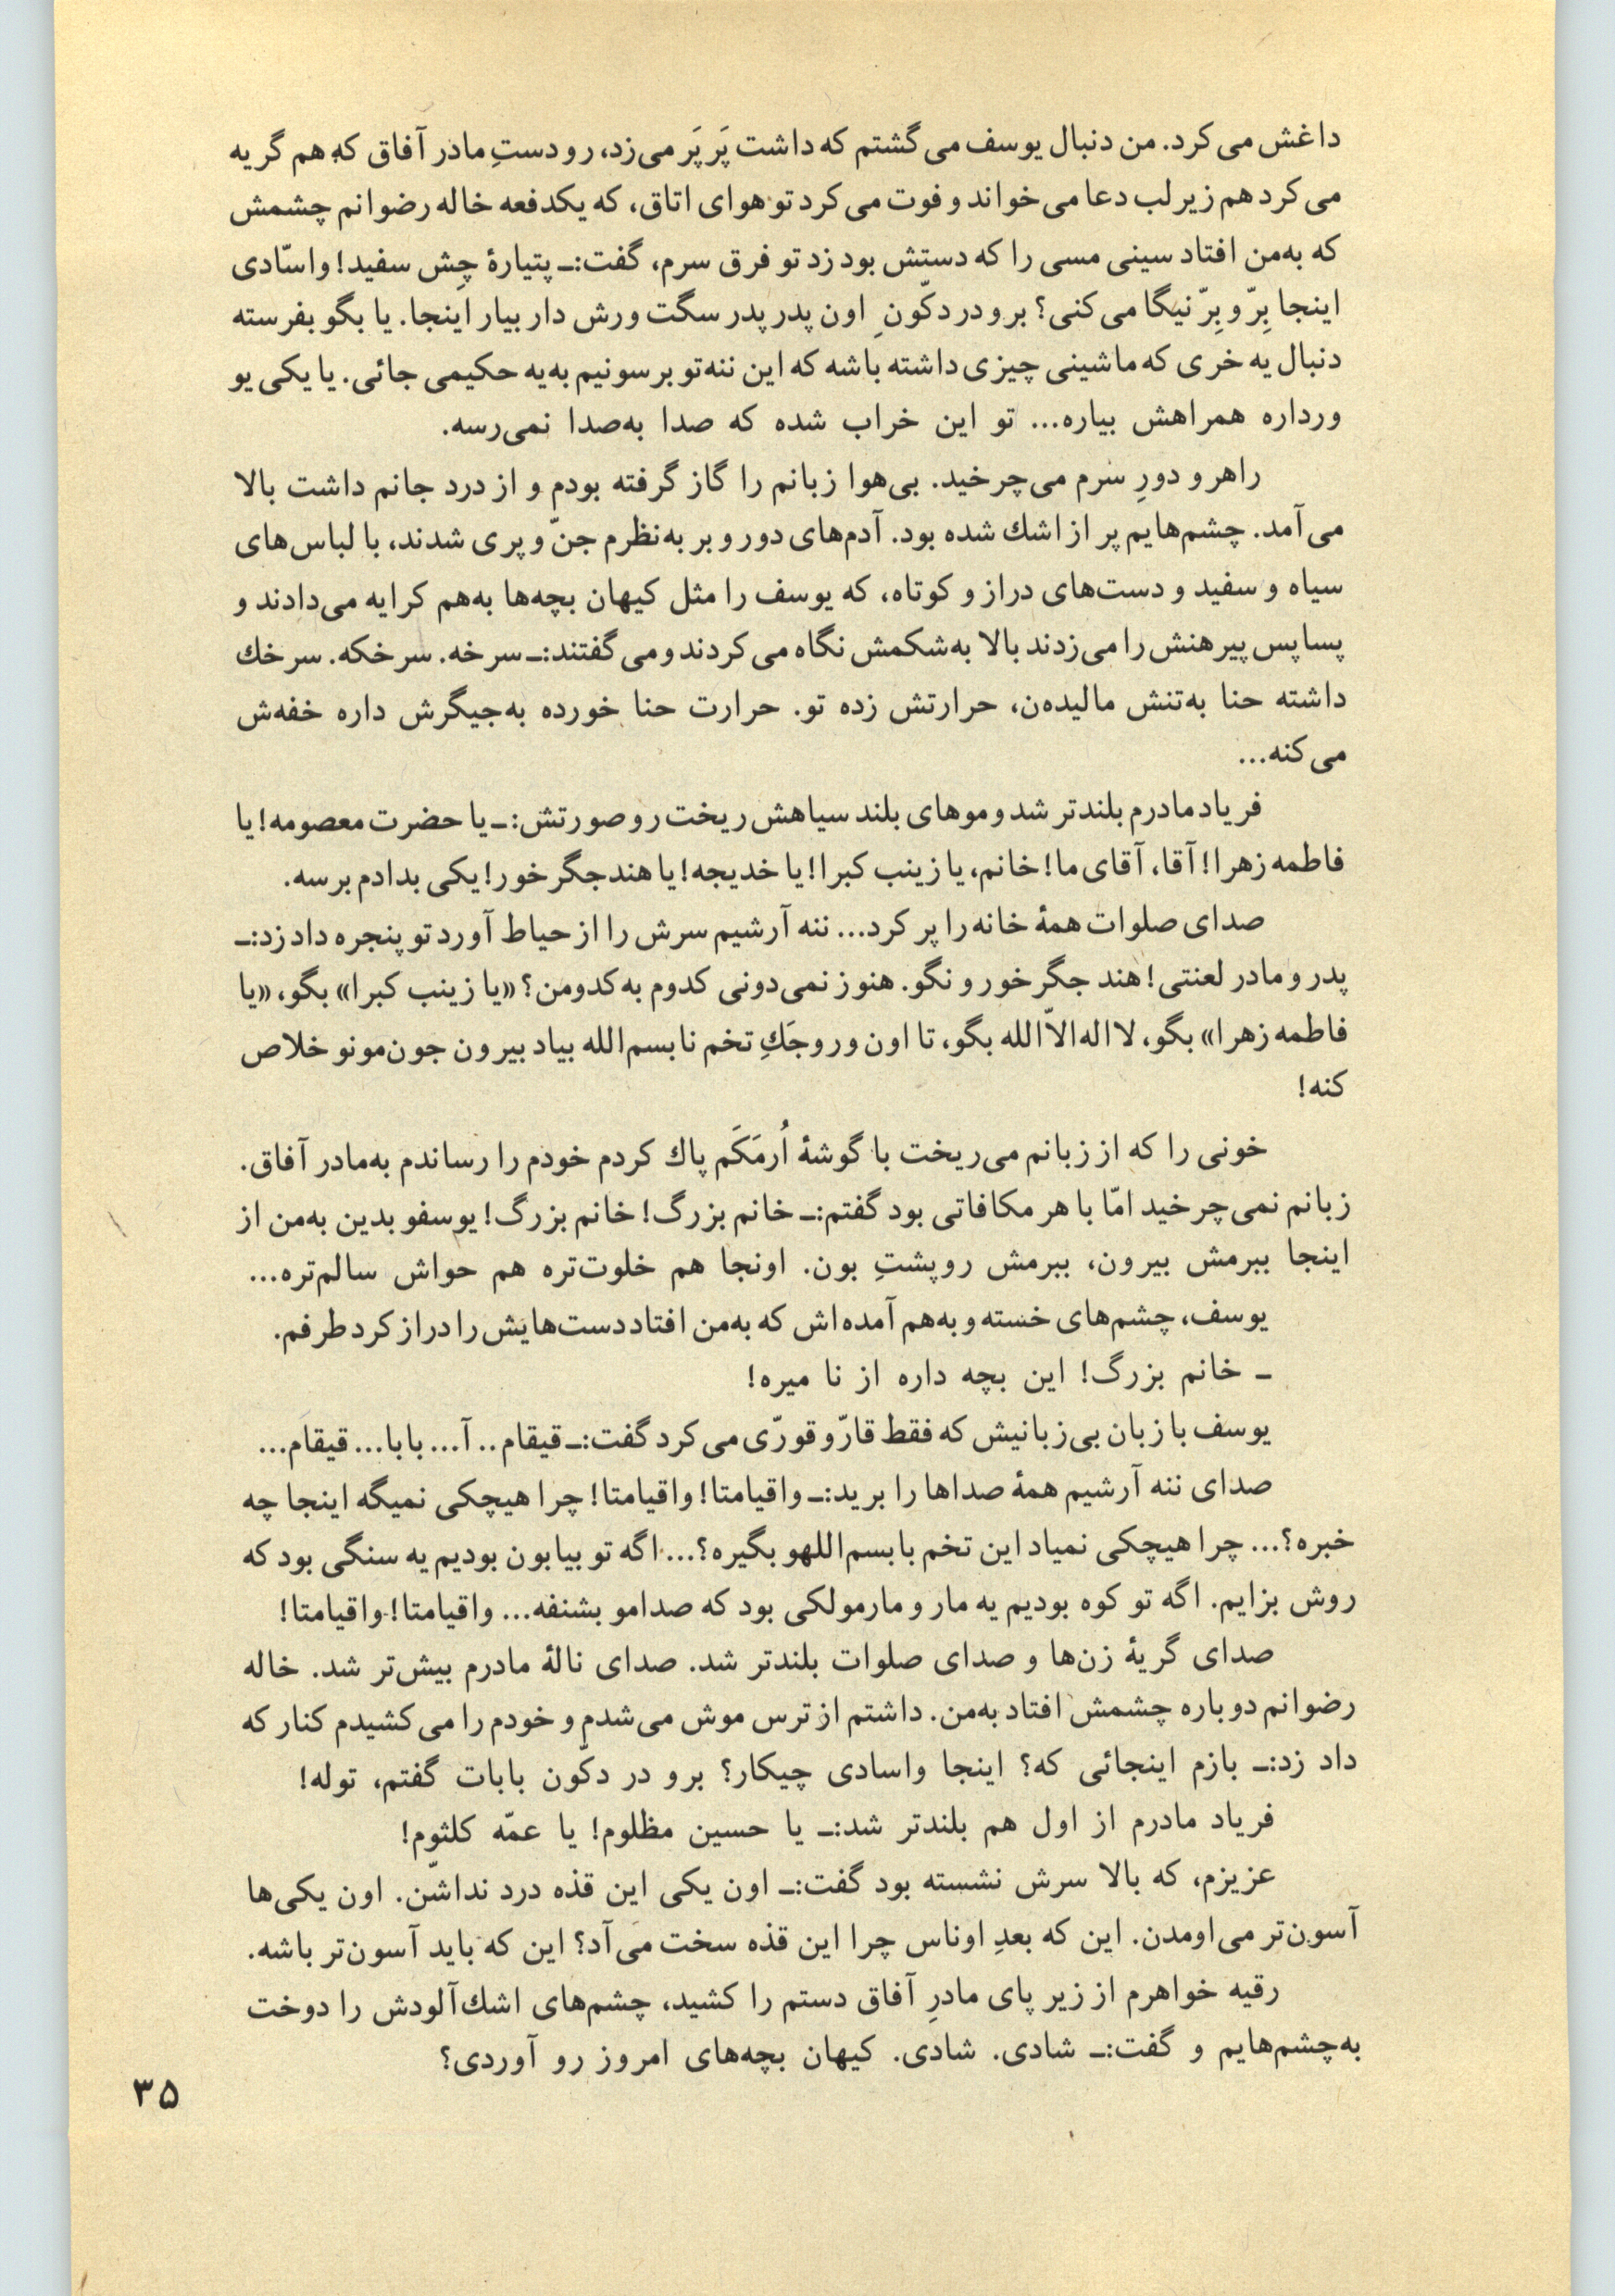 داغش می‌کرد. من دنبال یوسف می‌گشتم که داشت پَرپَر می‌زد، رو دستِ مادر آفاق که هم گریه
می‌کرد هم زیر لب دعا می‌خواند و فوت می‌کرد تو هوای اتاق، که یکدفعه خاله رضوانم چشمش
که به‌من افتاد سینی مسی را که دستش بود زد تو فرق سرم، گفت:ـ پتیارهٔ چِش سفید! واسّادی
اینجا بِرّ و بِرّ نیگا می‌کنی؟ برو در دکّونِ اون پدر پدر سگت ورش دار بیار اینجا. یا بگو بفرسته
دنبال یه خری که ماشینی چیزی داشته باشه که این ننه‌تو برسونیم به‌یه حکیمی جائی. یا یکی یو
ورداره همراهش بیاره... تو این خراب شده که صدا به‌صدا نمی‌رسه.
راهرو دورِ سرم می‌چرخید. بی‌هوا زبانم را گاز گرفته بودم و از درد جانم داشت بالا
می‌آمد. چشم‌هایم پر از اشك شده بود. آدم‌های دور و بر به‌نظرم جنّ و پری شدند، با لباس‌های
سیاه و سفید و دست‌های دراز و کوتاه، که یوسف را مثل کیهان بچه‌ها به‌هم کرایه می‌دادند و
پساپس پیرهنش را می‌زدند بالا به‌شکمش نگاه می‌کردند و می‌گفتند:ـ سرخه. سرخکه. سرخك
داشته حنا به‌تنش مالیده‌ن، حرارتش زده تو. حرارت حنا خورده به‌جیگرش داره خفه‌ش
می‌کنه...
فریاد مادرم بلندتر شد و موهای بلند سیاهش ریخت رو صورتش:ـ یا حضرت معصومه! یا
فاطمه زهرا! آقا، آقای ما! خانم، یا زینب کبرا! یا خدیجه! یا هند جگرخور! یکی بدادم برسه.
صدای صلوات همهٔ خانه را پر کرد... ننه آرشیم سرش را از حیاط آورد تو پنجره داد زد:ـ
پدر و مادر لعنتی! هند جگرخور و نگو. هنوز نمی‌دونی کدوم به‌کدومن؟ «یا زینب کبرا» بگو، «یا
فاطمه زهرا» بگو، لااله‌الاّالله بگو، تا اون وروجَكِ تخم نابسم‌الله بیاد بیرون جون‌مونو خلاص
کنه!
خونی را که از زبانم می‌ریخت با گوشهٔ اُرمَکَم پاك کردم خودم را رساندم به‌مادر آفاق.
زبانم نمی‌چرخید امّا با هر مکافاتی بود گفتم:ـ خانم بزرگ! خانم بزرگ! یوسفو بدین به‌من از
اینجا ببرمش بیرون، ببرمش رو پشتِ بون. اونجا هم خلوت‌تره هم حواش سالم‌تره...
یوسف، چشم‌های خسته و به‌هم آمده‌اش که به‌من افتاد دست‌هایش را دراز کرد طرفم.
ـ خانم بزرگ! این بچه داره از نا میره!
یوسف با زبان بی‌زبانیش که فقط قارّ و قورّی می‌کرد گفت:ـ قیقام.. آ... بابا... قیقام...
صدای ننه آرشیم همهٔ صداها را برید:ـ واقیامتا! واقیامتا! چرا هیچکی نمیگه اینجا چه
خبره؟... چرا هیچکی نمیاد این تخم بابسم‌اللهو بگیره؟... اگه تو بیابون بودیم یه سنگی بود که
روش بزایم. اگه تو کوه بودیم یه مار و مارمولکی بود که صدامو بشنفه... واقیامتا! واقیامتا!
صدای گریهٔ زن‌ها و صدای صلوات بلندتر شد. صدای نالهٔ مادرم بیش‌تر شد. خاله
رضوانم دوباره چشمش افتاد به‌من. داشتم از ترس موش می‌شدم و خودم را می‌کشیدم کنار که
داد زد:ـ بازم اینجائی که؟ اینجا واسادی چیکار؟ برو در دکّون بابات گفتم، توله!
فریاد مادرم از اول هم بلندتر شد:ـ یا حسین مظلوم! یا عمّه کلثوم!
عزیزم، که بالا سرش نشسته بود گفت:ـ اون یکی این قذه درد نداشّن. اون یکی‌ها
آسون‌تر می‌اومدن. این که بعدِ اوناس چرا این قذه سخت می‌آد؟ این که باید آسون‌تر باشه.
رقیه خواهرم از زیر پای مادرِ آفاق دستم را کشید، چشم‌های اشك‌آلودش را دوخت
به‌چشم‌هایم و گفت:ـ شادی. شادی. کیهان بچه‌های امروز رو آوردی؟
۳۵